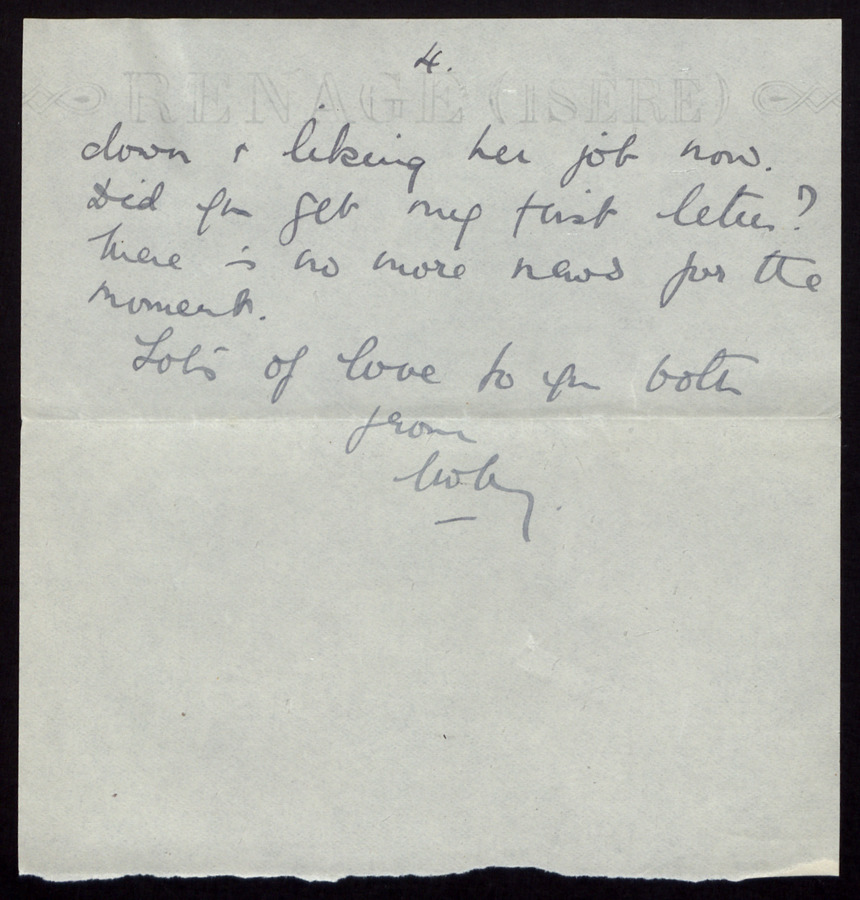 4.
RENAGE (ISÈRE)
down & liking her job now.
Did you get my first letter?
There is no more news for the
moment.
Lots of love to you both
from